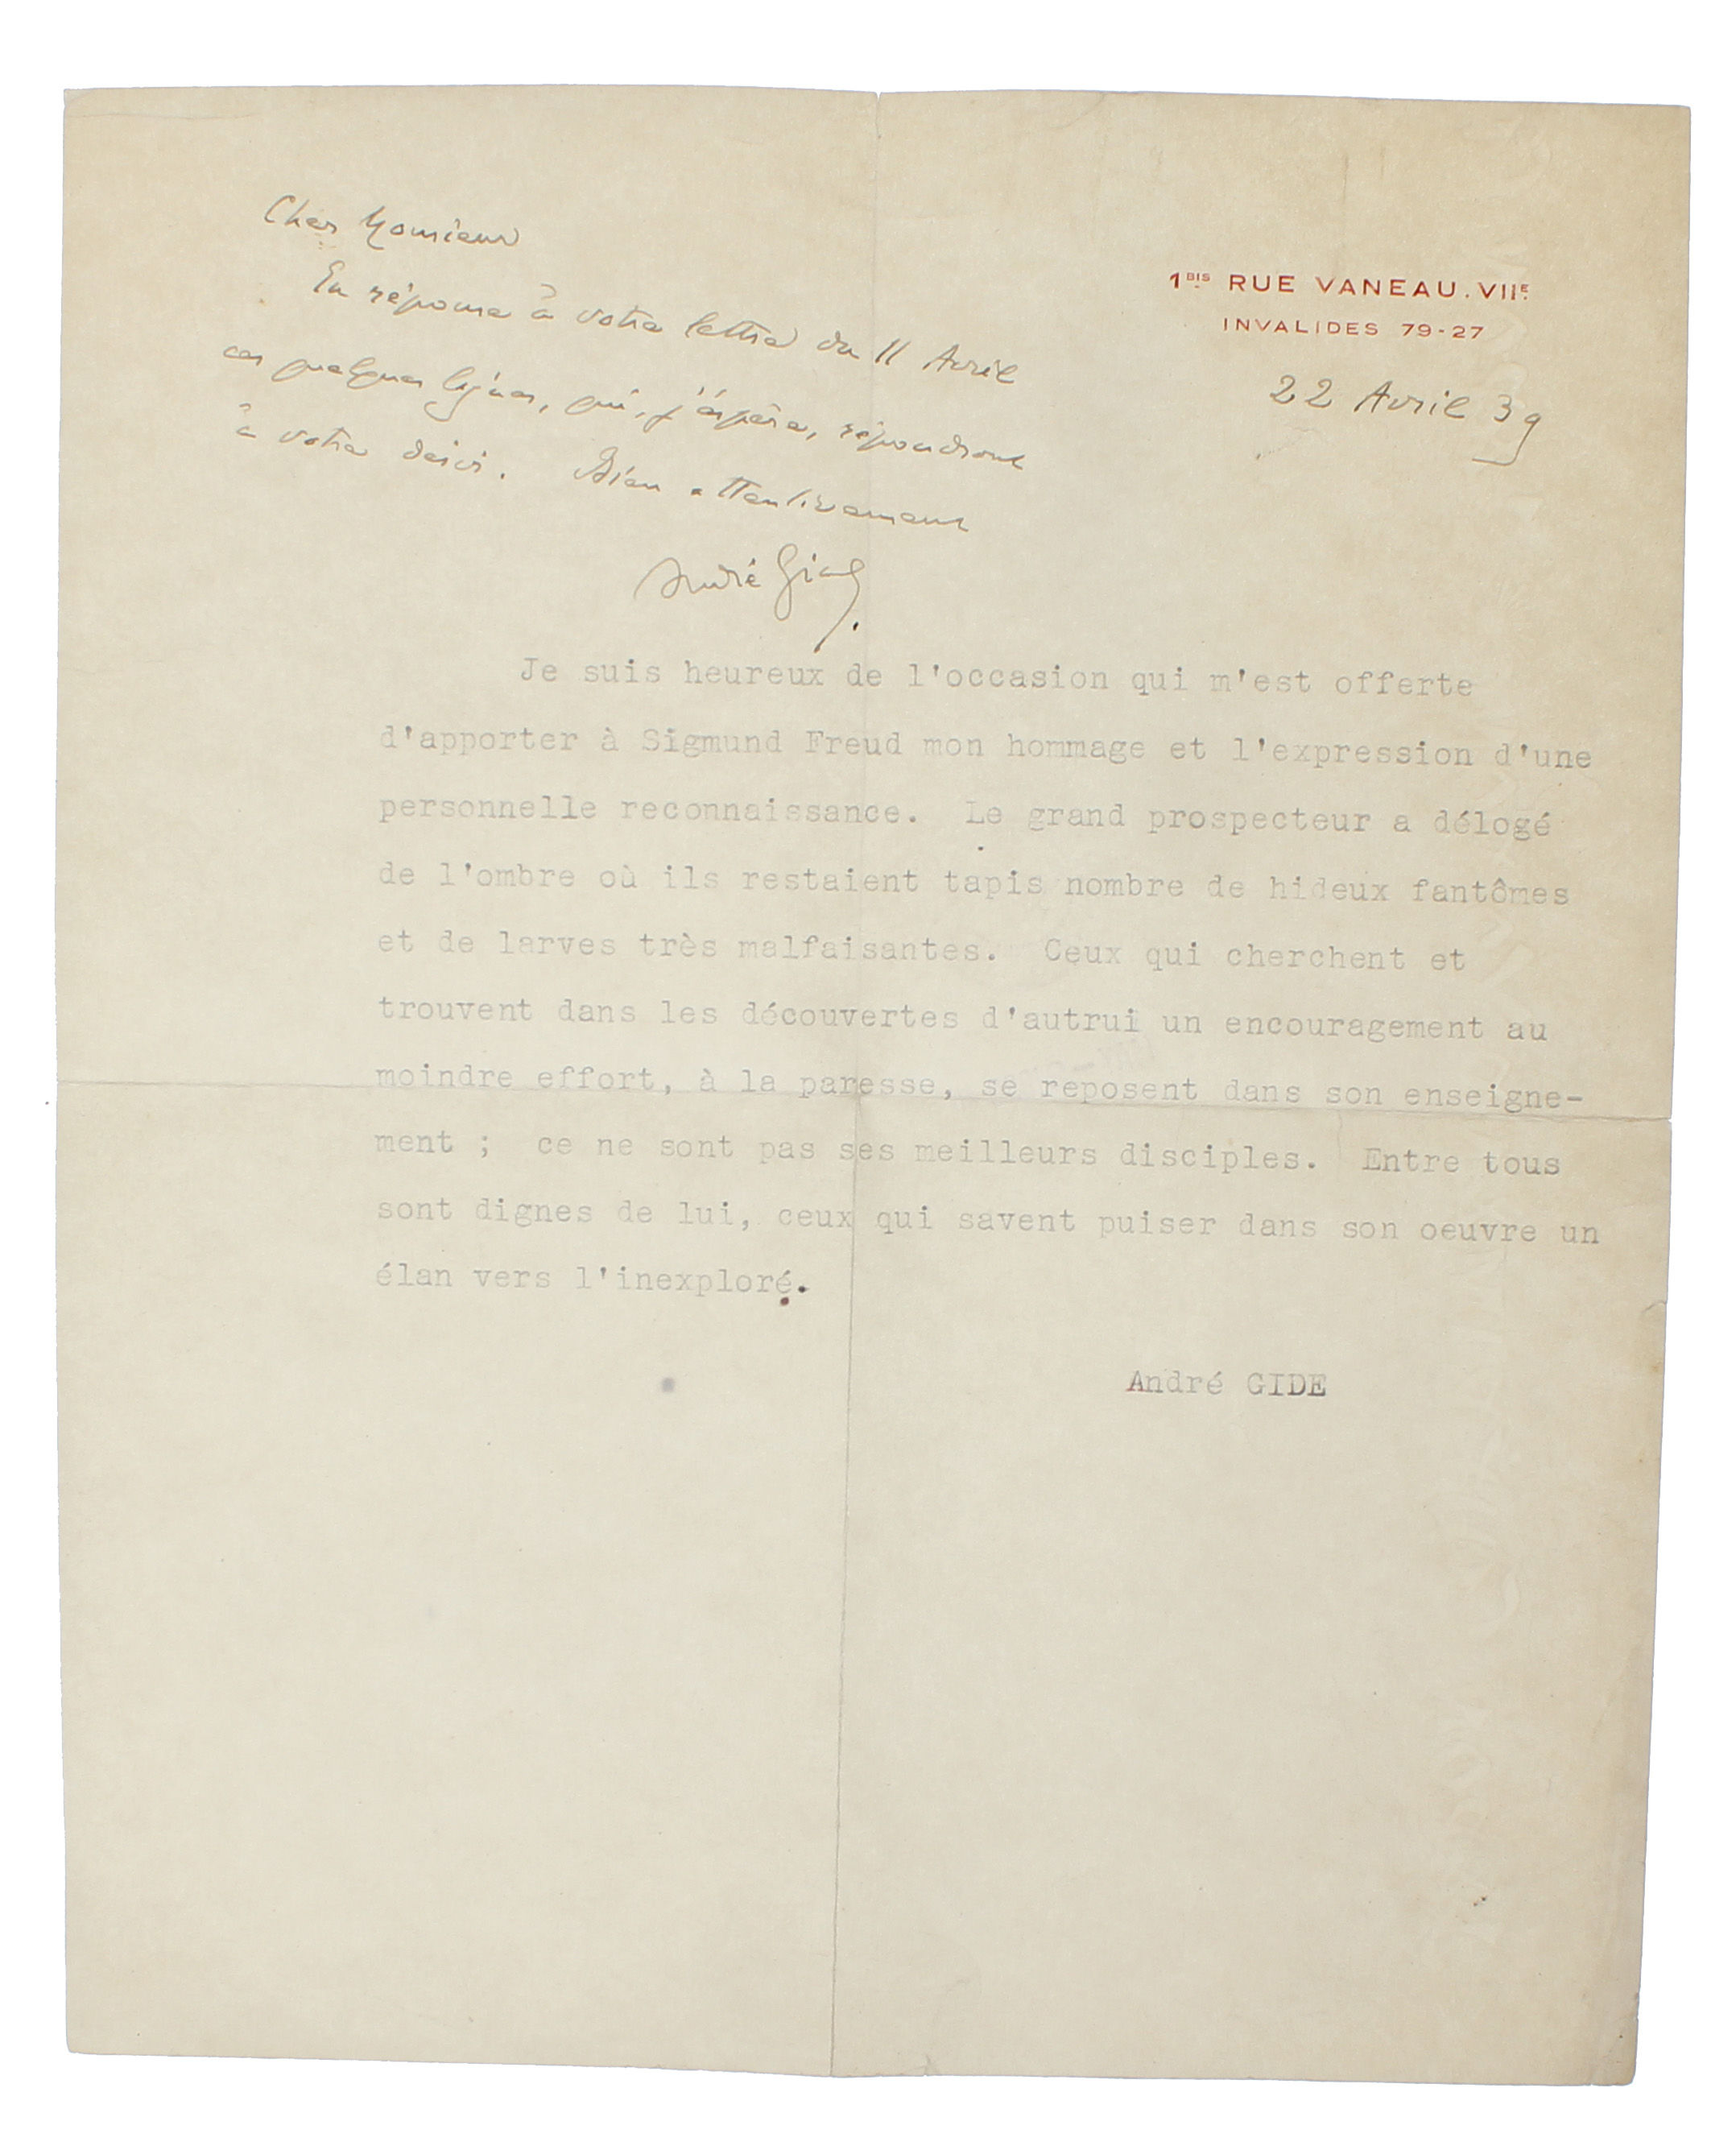 1BIS RUE VANEAU. VIIE.
INVALIDES 79-27
22 Avril 39
Cher Monsieur
En réponse à votre lettre du 11 Avril
ces quelques lignes, qui, j'espère, répondront
à votre désir. Bien attentivement
André Gide.
Je suis heureux de l'occasion qui m'est offerte
d'apporter à Sigmund Freud mon hommage et l'expression d'une
personnelle reconnaissance. Le grand prospecteur a délogé
de l'ombre où ils restaient tapis nombre de hideux fantômes
et de larves très malfaisantes. Ceux qui cherchent et
trouvent dans les découvertes d'autrui un encouragement au
moindre effort, à la paresse, se reposent dans son enseigne-
ment ; ce ne sont pas ses meilleurs disciples. Entre tous
sont dignes de lui, ceux qui savent puiser dans son oeuvre un
élan vers l'inexploré.
André GIDE